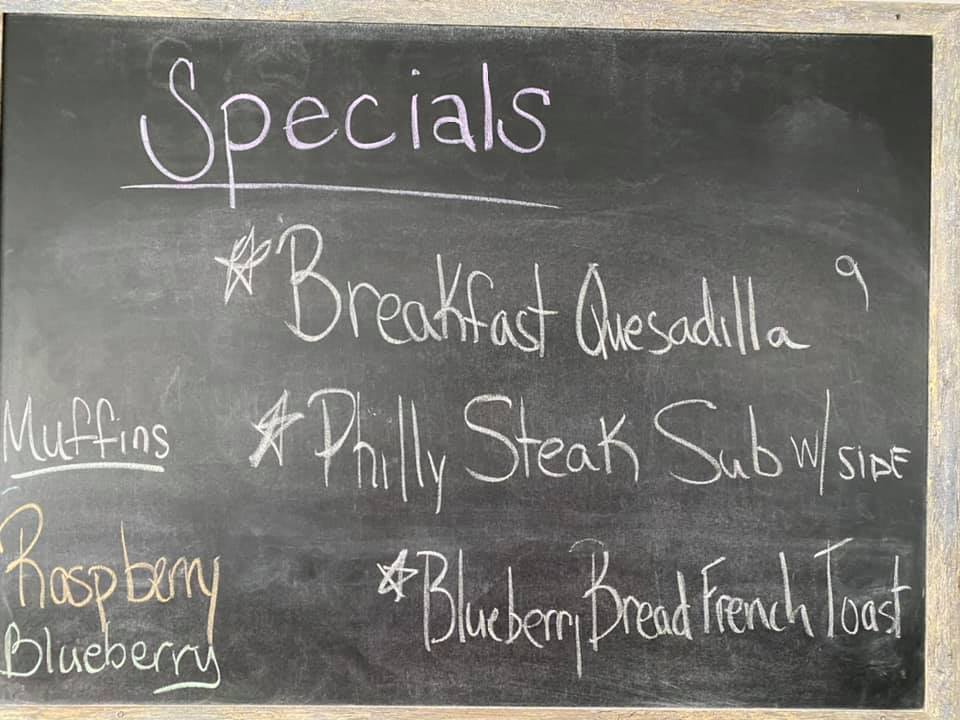 Specials
☆ Breakfast Quesadilla 9
☆ Philly Steak Sub w/ SIDE
☆ Blueberry Bread French Toast
Muffins
Raspberry
Blueberry